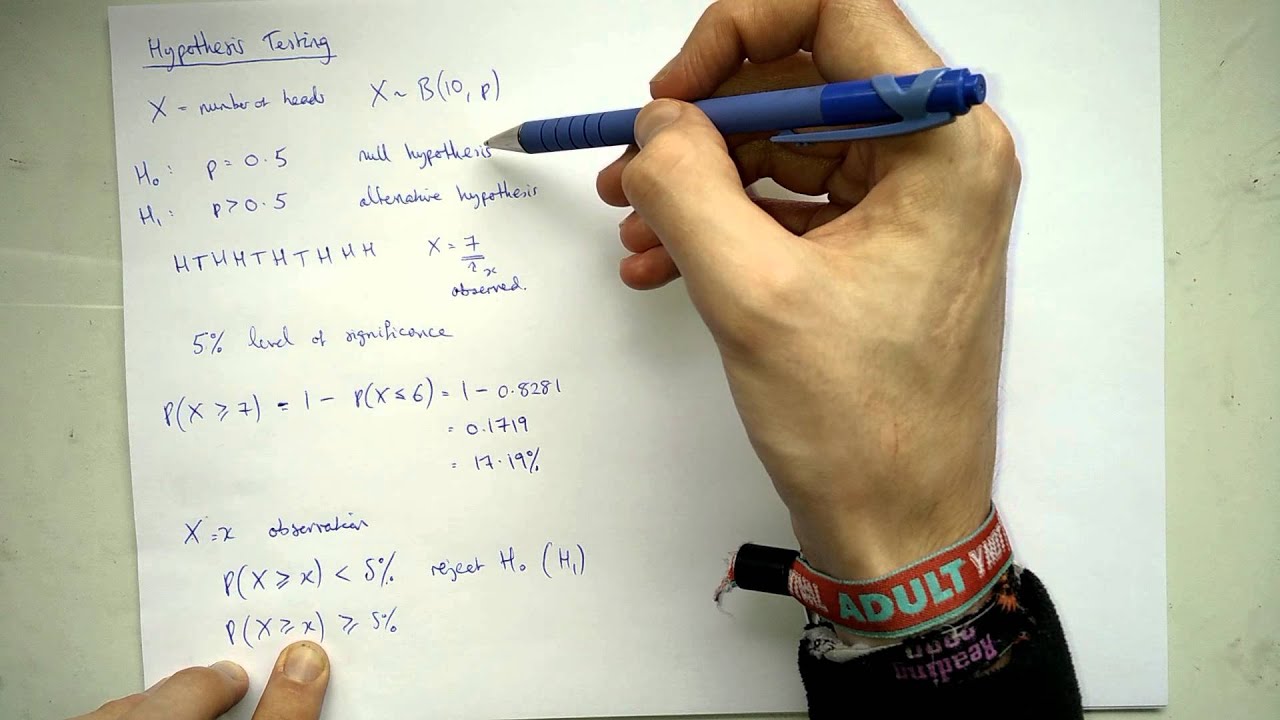 Hypothesis Testing
X = number of heads X ~ B(10, p)
H₀: p = 0.5 null hypothesis
H₁: p > 0.5 alternative hypothesis
H T H H T H T H H H X = 7
x
observed.
5% level of significance
P(X ≥ 7) = 1 - P(X ≤ 6) = 1 - 0.8281
= 0.1719
= 17.19%
X = x observation
P(X ≥ x) < 5% reject H₀ (H₁)
P(X ≥ x) ≥ 5%
ADULT
Reading